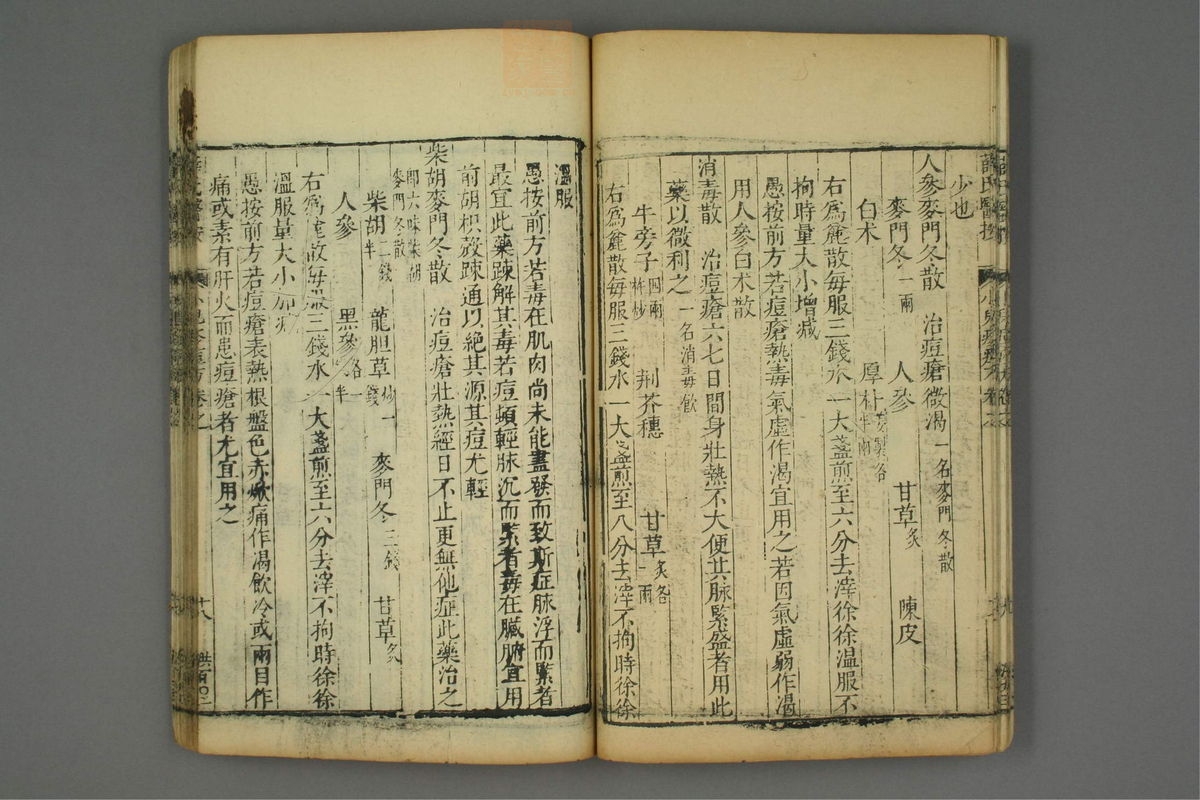 薛氏醫按
少也
人參麥門冬散 治痘瘡微渴 一名麥門冬散
麥門冬一兩 人參 甘草炙 陳皮
白术 厚朴姜製各半兩
右爲麄散每服三錢水一大盞煎至六分去滓徐徐温服不
拘時量大小增減
愚按前方若痘瘡熱毒氣虛作渴宜用之若因氣虛弱作渴
用人參白术散
消毒散 治痘瘡六七日間身壯熱不大便其脉緊盛者用此
藥以微利之 一名消毒飲
牛旁子四兩杵炒 荆芥穗 甘草炙各一兩
右爲麄散每服三錢水一大盞煎至八分去滓不拘時徐徐
温服
愚按前方若毒在肌肉尚未能盡發而致斯症脉浮而緊者
最宜此藥踈解其毒若痘頓輕脉沉而緊者毒在臟腑宜用
前胡枳殼踈通以絶其源其痘尤輕
柴胡麥門冬散 治痘瘡壯熱經日不止更無他症此藥治之
即六味柴胡麥門冬散
柴胡二錢半 龍胆草炒一錢 麥門冬三錢 甘草炙
人參 黑參各一錢半
右爲麄散每服三錢水一大盞煎至六分去滓不拘時徐徐
温服量大小加減
愚按前方若痘瘡表熱根盤色赤焮痛作渴飲冷或兩目作
痛或素有肝火而患痘瘡者尤宜用之